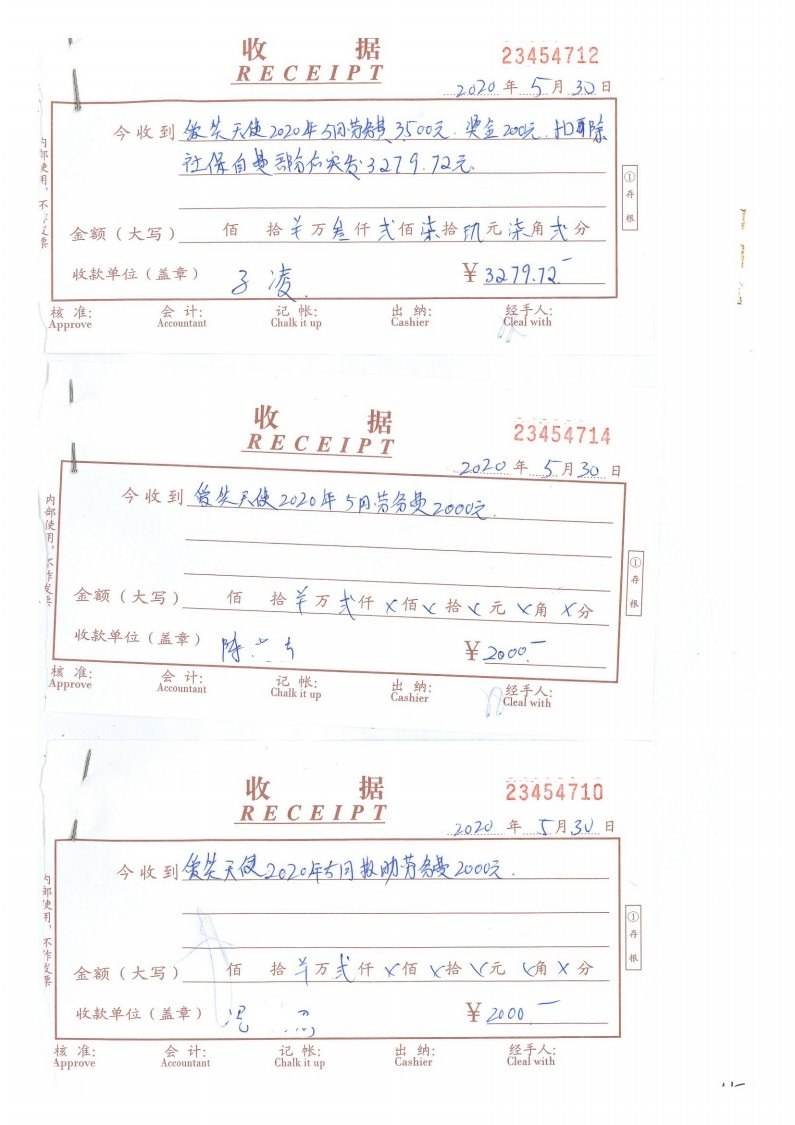 收 据
RECEIPT
23454712
2020 年 5 月 30 日
今收到 爱笑天使2020年5月劳务费3500元.奖金200元.扣除
社保自费部分后实发3279.72元.
金额（大写） 佰 拾 万 叁 仟 贰 佰 柒 拾 玖 元 柒 角 贰 分
收款单位（盖章） 子 凌
¥ 3279.72
核 准: 会 计: 记 帐: 出 纳: 经手人:
Approve Accountant Chalk it up Cashier Cleal with
内部使用，不作发票
①存根
收 据
RECEIPT
23454714
2020 年 5 月 30 日
今收到 爱笑天使2020年5月劳务费2000元.
金额（大写） 佰 拾 万 贰 仟 x 佰 x 拾 x 元 x 角 x 分
收款单位（盖章） 陈
¥ 2000.
核 准: 会 计: 记 帐: 出 纳: 经手人:
Approve Accountant Chalk it up Cashier Cleal with
内部使用，不作发票
①存根
收 据
RECEIPT
23454710
2020 年 5 月 30 日
今收到 爱笑天使2020年5月救助劳务费2000元.
金额（大写） 佰 拾 万 贰 仟 x 佰 x 拾 x 元 x 角 x 分
收款单位（盖章）
¥ 2000
核 准: 会 计: 记 帐: 出 纳: 经手人:
Approve Accountant Chalk it up Cashier Cleal with
内部使用，不作发票
①存根